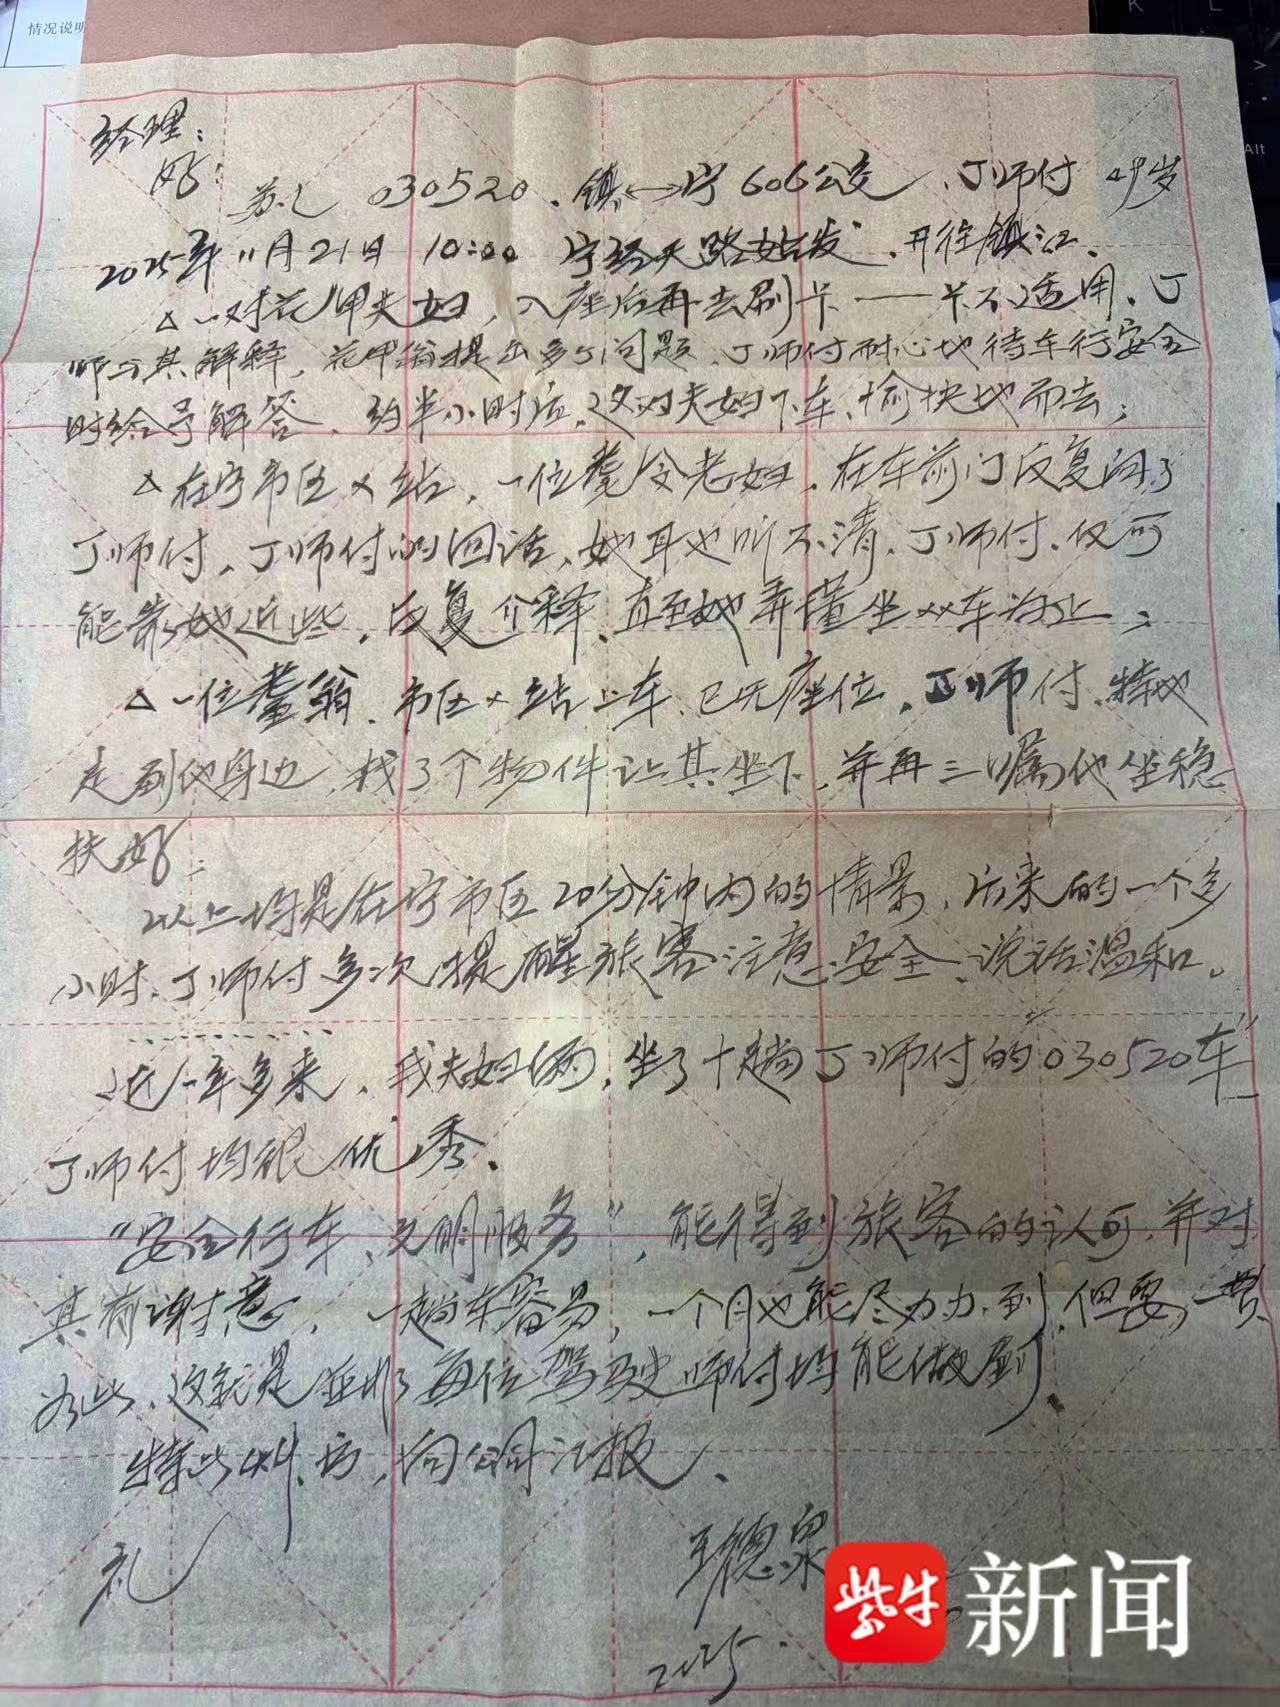 情况说明
经理:
好:
苏L 030520、镇↔宁606公交、丁师付 49岁
2025年11月21日 10:00 宁经天路站发、开往镇江、
△一对花甲夫妇，入座后再去刷卡——卡不适用、丁
师与其解释，花甲翁提出多个问题、丁师付耐心地待车行安全
时给予解答、约半小时后，这对夫妇下车、愉快地而去；
△在宁市区×站，一位耄令老妇，在车前门反复问了
丁师付，丁师付的回话，她耳也听不清，丁师付、仅可
能靠她近些，反复介释、直至她弄懂坐××车为止；
△一位耄翁、市区×站上车、已无座位，丁师付、特地
走到他身边，找了个物件让其坐下，并再三嘱他坐稳
扶好；
以上均是在宁市区20分钟内的情景，后来的一个多
小时、丁师付多次提醒旅客注意安全、说话温和。
近一年多来，我夫妇俩，坐了十趟丁师付的030520车
丁师付均很优秀、
"安全行车、文明服务"，能得到旅客的认可，并对
其有谢意，一趟车容易，一个月也能尽力办到，但要一贯
为此，这就是 每位驾驶师付均能做到、
特此 ，向公司汇报、
礼
王德泉
2025.
紫牛
新闻
K
L
Alt